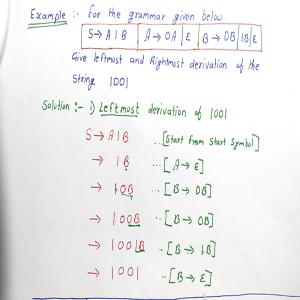 Example :- for the grammar given below
S → A1B | A → OA | E | B → OB | 1B | E
Give leftmost and Rightmost derivation of the
String 1001
Solution :- i) Leftmost derivation of 1001
S → A1B ...[Start from Start Symbol]
→ 1B ...[A → E]
→ 10B ...[B → OB]
→ 100B ..[B → OB]
→ 1001B ..[B → 1B]
→ 1001 ..[B → E]